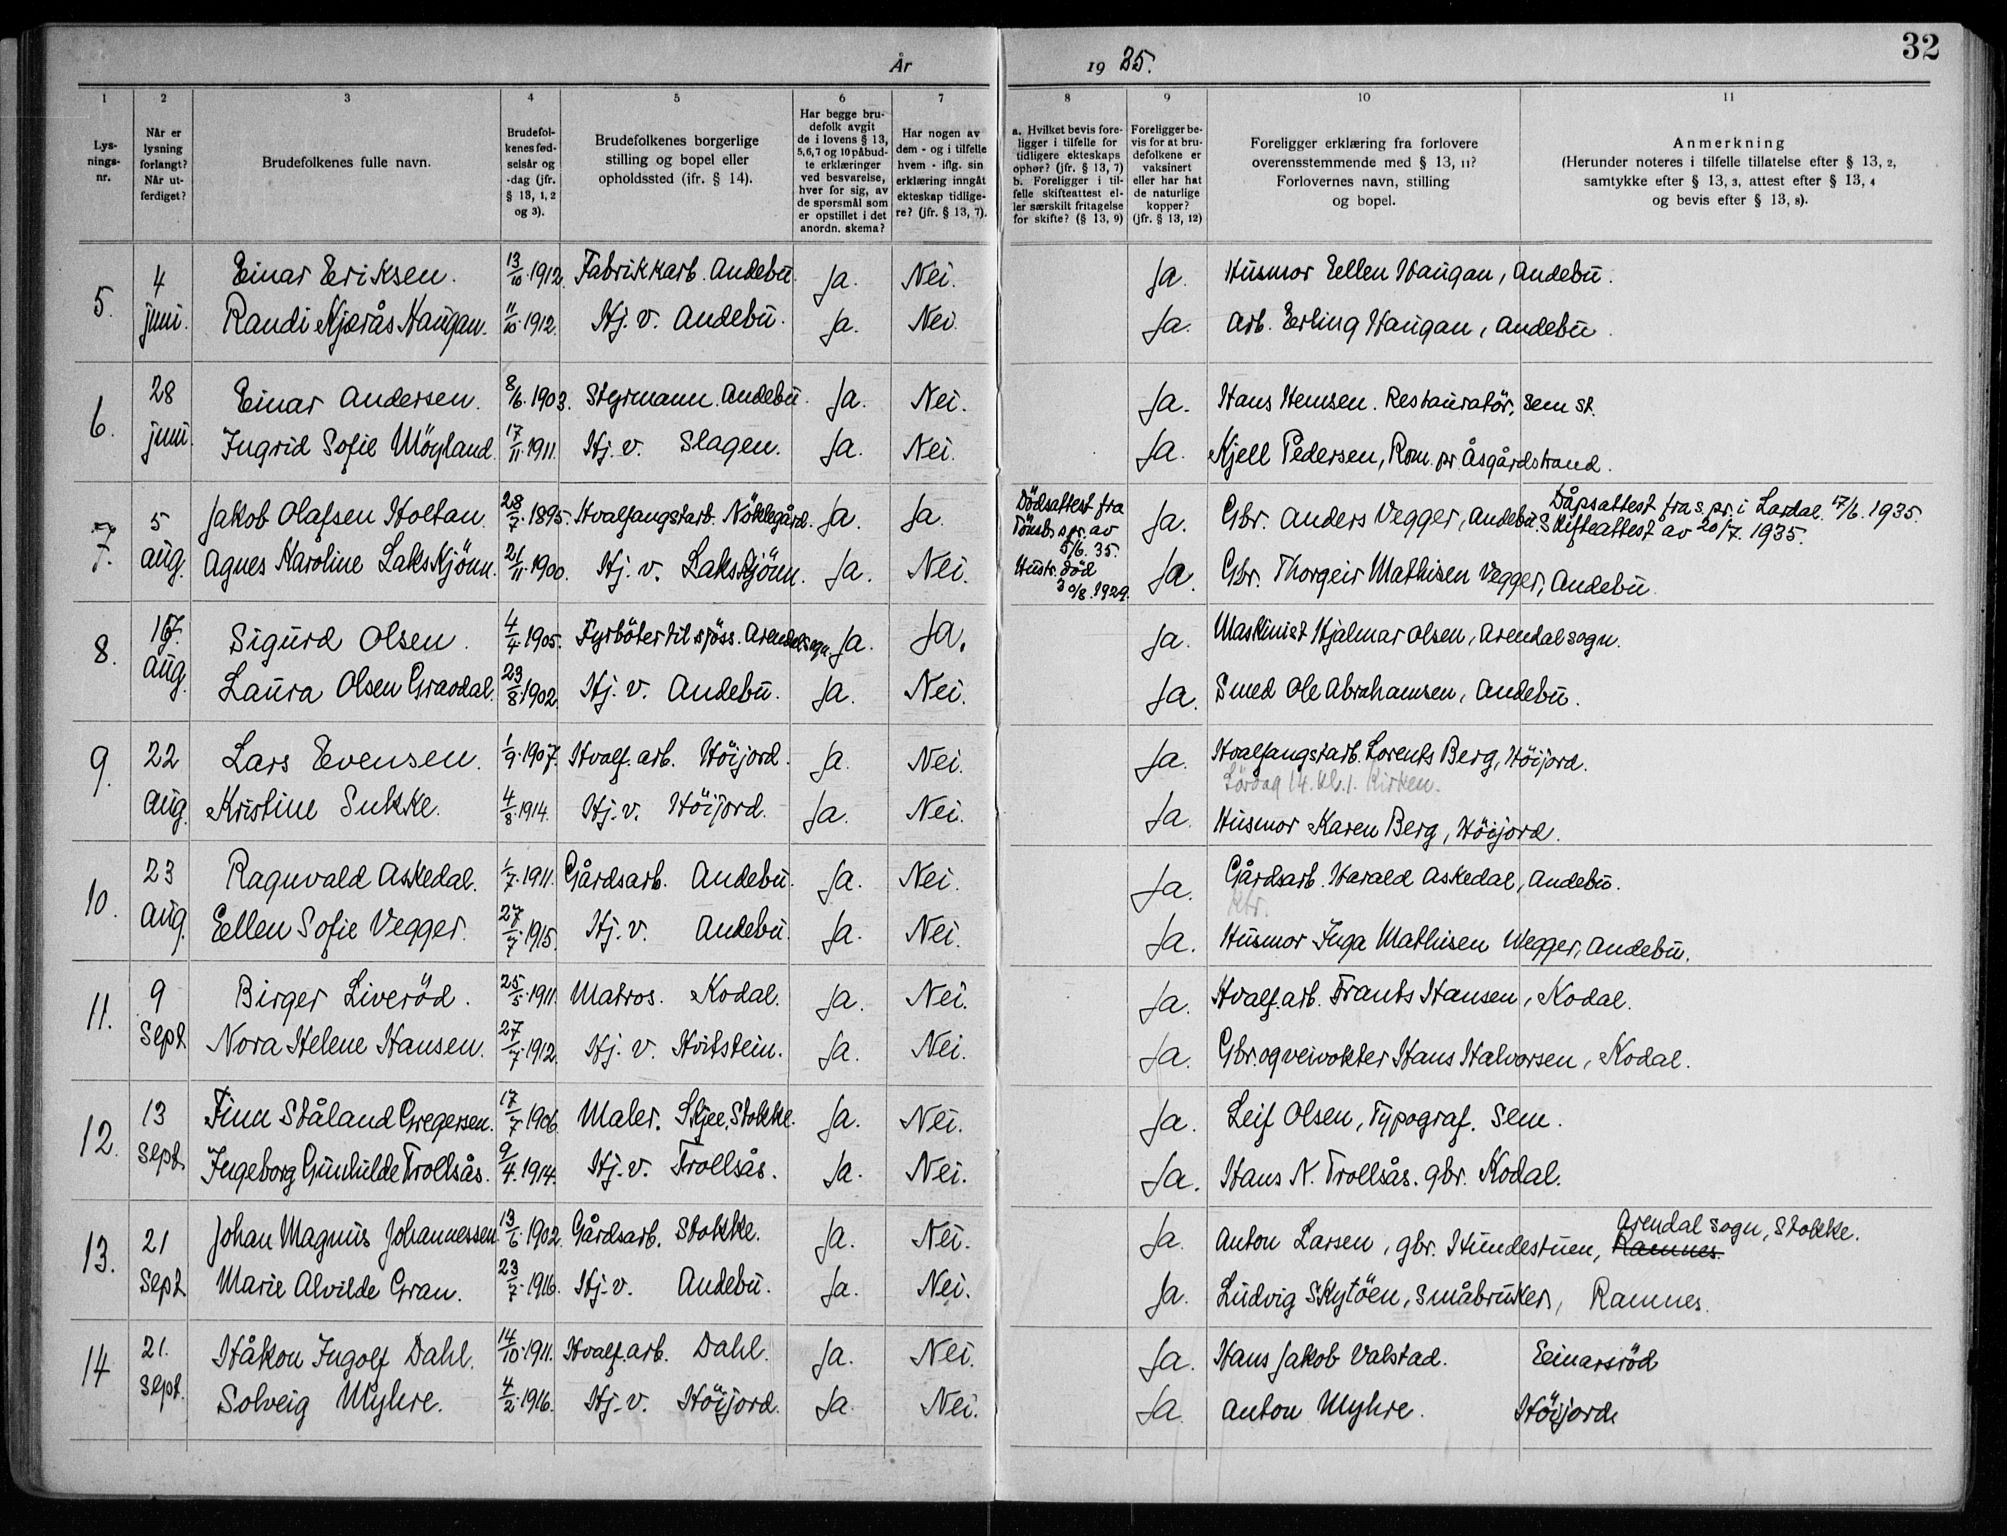 År 1935.
32
1 2 3 4 5 6 7 8 9 10 11
Lysningsnr.
Når er lysning forlangt? Når utferdiget?
Brudefolkenes fulle navn.
Brudefolkenes fødselsår og -dag (jfr. § 13, 1, 2 og 3).
Brudefolkenes borgerlige stilling og bopel eller opholdssted (ifr. § 14).
Har begge brudefolk avgit de i lovens § 13, 5, 6, 7 og 10 påbudte erklæringer ved besvarelse, hver for sig, av de spørsmål som er opstillet i det anordn. skema?
Har nogen av dem - og i tilfelle hvem - iflg. sin erklæring inngåt ekteskap tidligere? (jfr. § 13, 7).
a. Hvilket bevis foreligger i tilfelle for tidligere ekteskaps ophør? (jfr. § 13, 7) b. Foreligger i tilfelle skifteattest eller særskilt fritagelse for skifte? (§ 13, 9)
Foreligger bevis for at brudefolkene er vaksinert eller har hat de naturlige kopper? (jfr. § 13, 12)
Foreligger erklæring fra forlovere overensstemmende med § 13, 11? Forlovernes navn, stilling og bopel.
Anmerkning (Herunder noteres i tilfelle tillatelse efter § 13, 2, samtykke efter § 13, 3, attest efter § 13, 4 og bevis efter § 13, 8).
5. 4 Einar Eriksen. 13/10.1912. Fabrikkarb. Andebu. Ja. Nei. Ja. Husmor Eellen Haugan, Andebu.
juni. Randi Kjærås Haugan. 11/10.1912. Hj. v. Andebu. Ja. Nei. Ja. Arb. Eerling Haugan, Andebu.
6. 28 Einar Andersen. 8/6.1903. Styrmann. Andebu. Ja. Nei. Ja. Hans Hemsen. Restauratör, Sem st.
juni. Ingrid Sofie Möyland. 17/11.1911. Hj. v. Slagen. Ja. Nei. Ja. Kjell Pedersen, Rom. pr Åsgårdstrand.
7. 5 Jakob Olafsen Holtan. 28/7.1895. Hvalfangstarb. Nöklegård. Ja. Ja. Dödsattest fra Tönsb. spr. av 5/6. 35. Ja. Gbr. Anders Vegger, Andebu. Dåpsattest fra s.pr. i Lardal. 17/6. 1935. Skifteattest av 20/7. 1935.
7. aug. Agnes Karoline Lakskjönn. 21/11.1900. Hj. v. Lakskjönn. Ja. Nei. Hustr. död 30/8.1929. Ja. Gbr. Thorgeir Mathisen Vegger, Andebu.
8. 17. Sigurd Olsen. 4/4.1905. Fyrböter til sjöss. Arendal sogn. Ja. Ja. Ja. Maskinist Hjalmar Olsen, Arendal sogn.
aug. Laura Olsen Graodal. 23/8.1902. Hj. v. Andebu. Ja. Nei. Ja. Smed Ole Abrahamsen, Andebu.
9. 22 Lars Evensen. 1/9.1907. Hvalf. arb. Höijord. Ja. Nei. Ja. Hvalfangstarb. Lorents Berg, Höijord.
Lördag 14. kl. 1. Kirken.
aug. Kristine Sukke. 4/8.1914. Hj. v. Höijord. Ja. Nei. Ja. Husmor Karen Berg, Höijord.
10. 23 Ragnvald Askedal. 1/7.1911. Gårdsarb. Andebu. Ja. Nei. Ja. Gårdsarb. Harald Askedal, Andebu.
aug. Eellen Sofie Vegger. 27/7.1915. Hj. v. Andebu. Ja. Nei. Ja. Husmor Inga Mathisen Vegger, Andebu.
11. 9 Birger Liveröd. 25/5.1911. Matros. Kodal. Ja. Nei. Ja. Hvalf. arb. Frants Hansen, Kodal.
sept. Nora Helene Hansen. 27/7.1912. Hj. v. Hvitstein. Ja. Nei. Ja. Gbr. og veivokter Hans Halvorsen, Kodal.
12. 13 Finn Ståland Gregersen. 17/7.1906. Maler. Skjee, Stokke. Ja. Nei. Ja. Leif Olsen, Typograf. Sem.
sept. Ingeborg Gunhilde Trollsås. 9/4.1914. Hj. v. Trollsås. Ja. Nei. Ja. Hans N. Trollsås. gbr. Kodal.
13. 21 Johan Magnus Johannessen. 13/6.1902. Gårdsarb. Stokke. Ja. Nei. Ja. Anton Larsen, gbr. Hundestuen, Ramnes. Arendal sogn, Stokke.
sept. Marie Alvilde Gran. 23/7.1916. Hj. v. Andebu. Ja. Nei. Ja. Ludvig Skytöen, småbruker, Ramnes.
14 21. Håkon Ingolf Dahl. 14/10.1911. Hvalf. arb. Dahl. Ja. Nei. Ja. Hans Jakob Valstad. Eeinarsröd
sept. Solveig Myhre. 4/2.1916. Hj. v. Höijord. Ja. Nei. Ja. Anton Myhre. Höijord